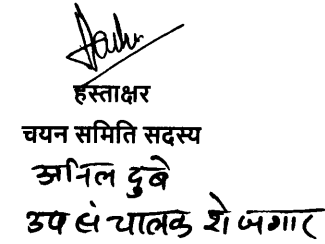 हस्ताक्षर
चयन समिति सदस्य
अनिल दुबे
उप संचालक रोजगार